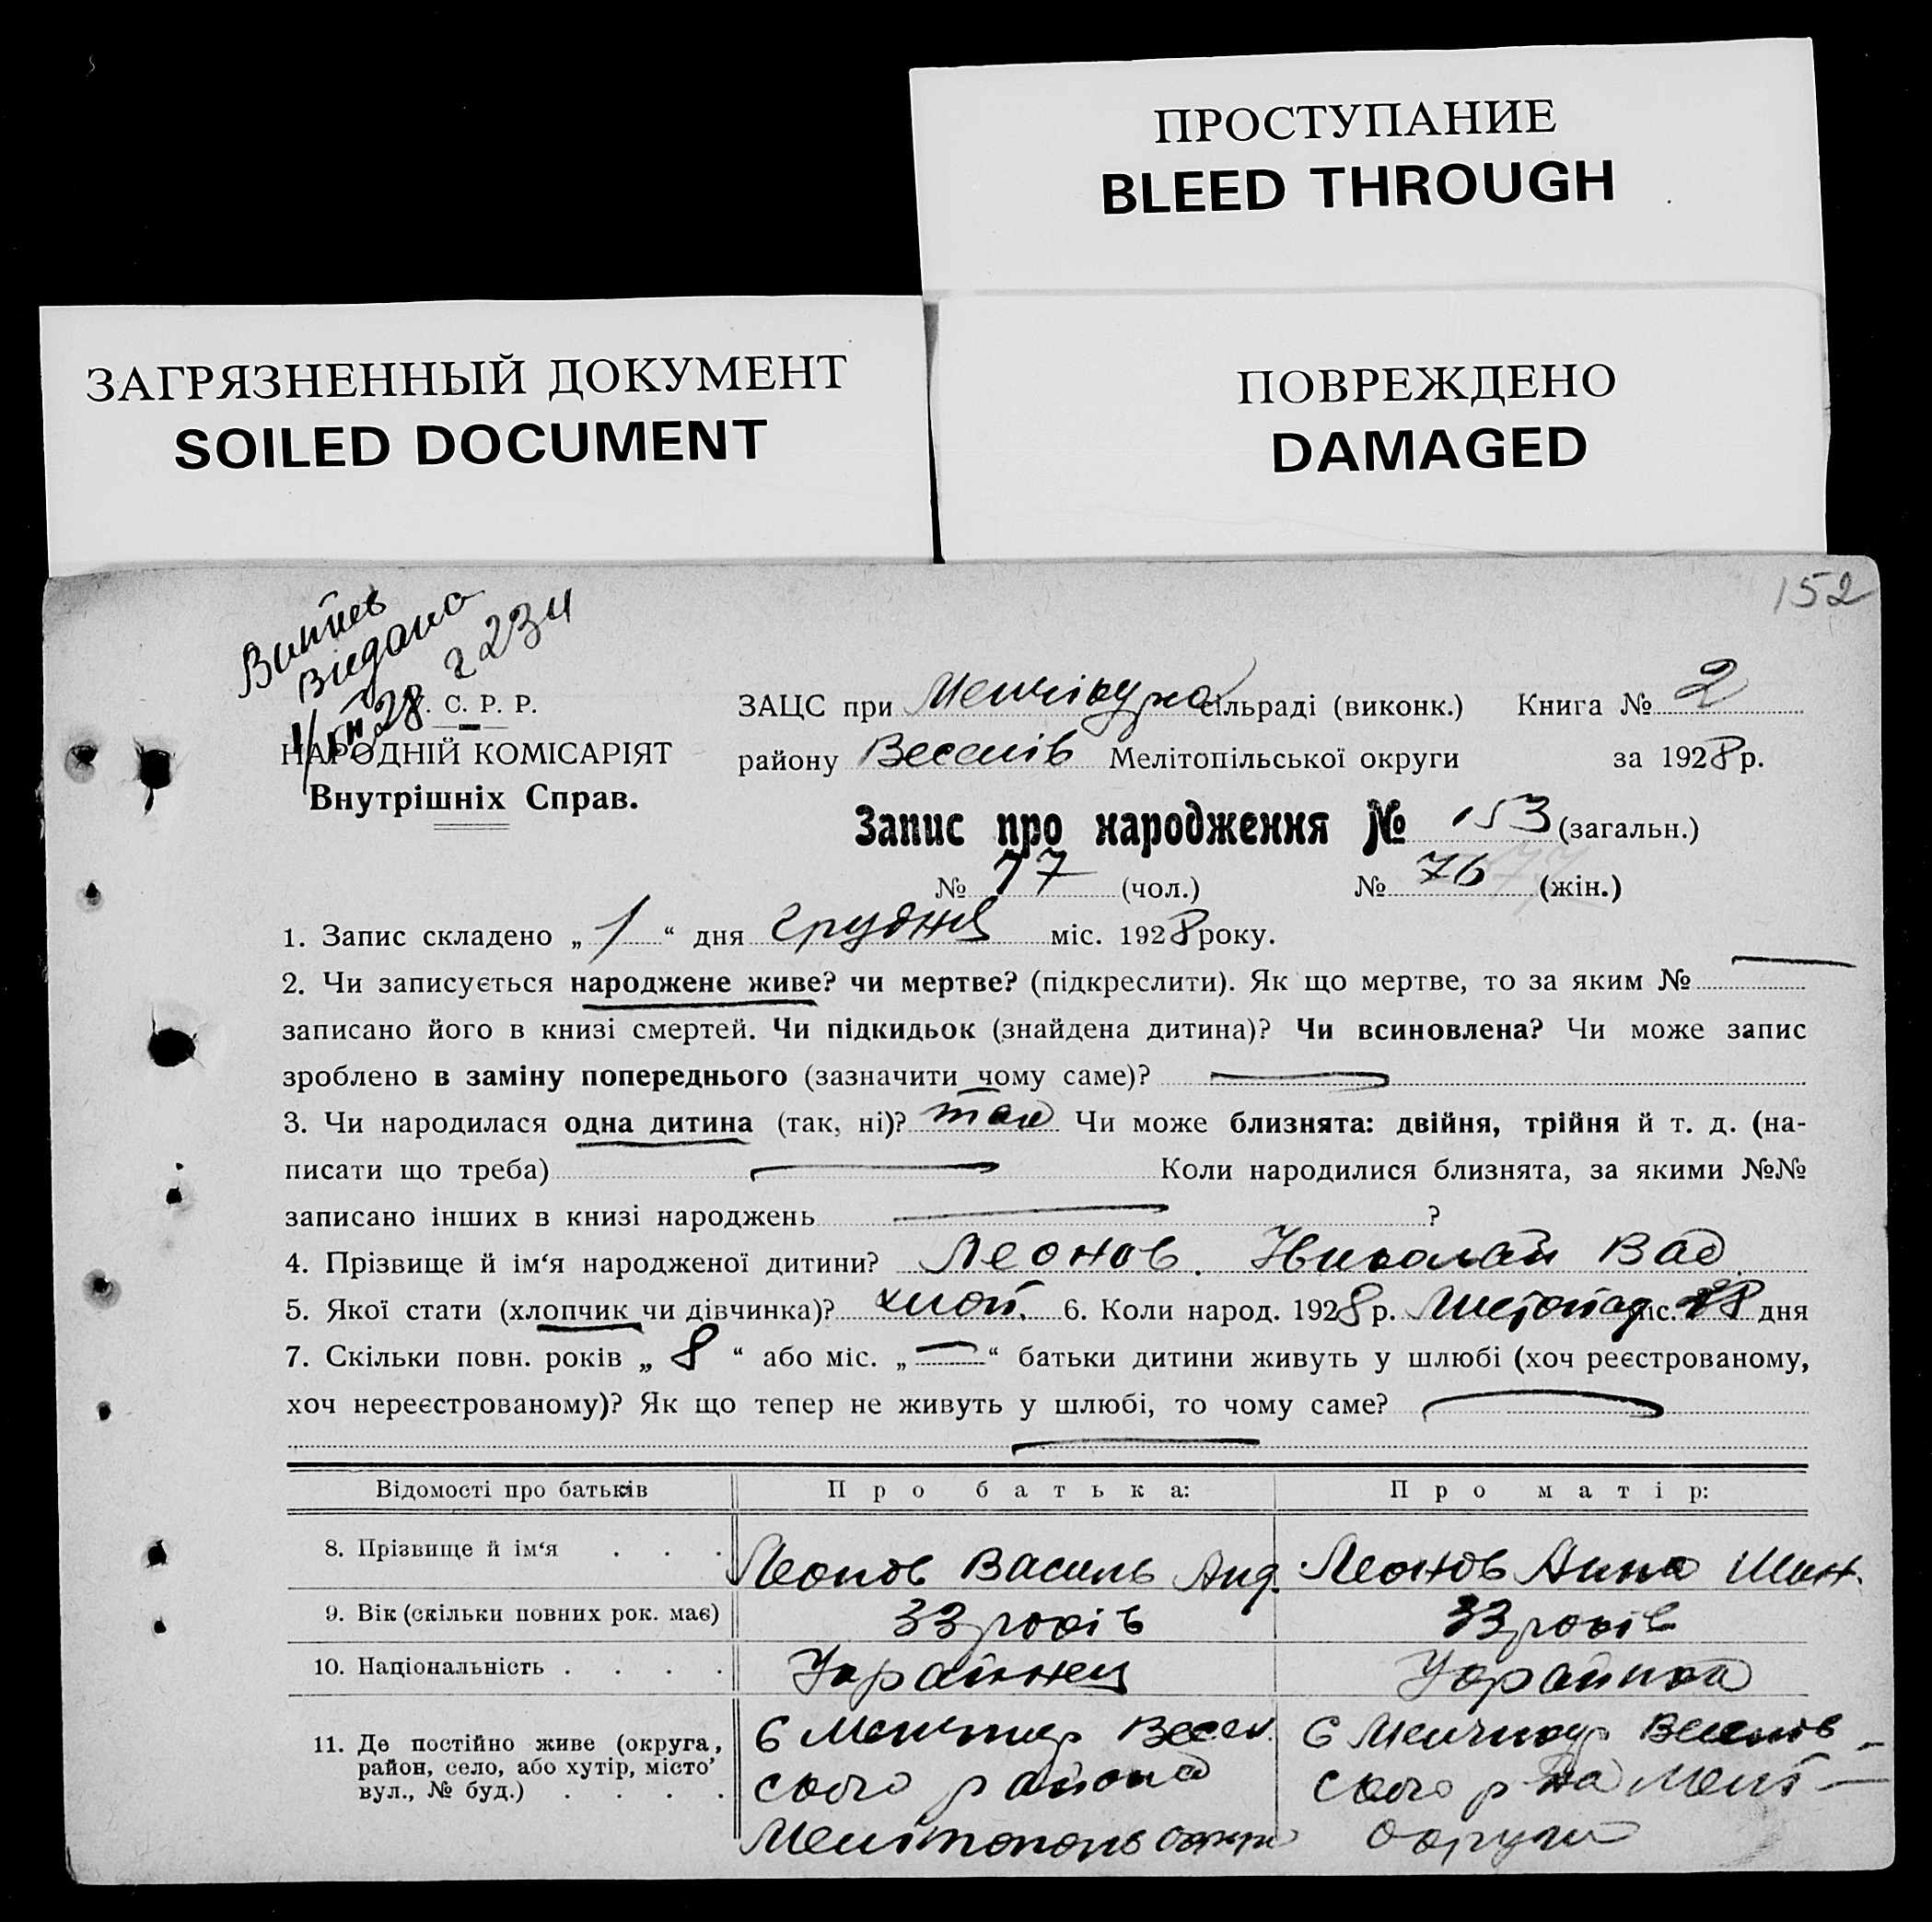 ПРОСТУПАНИЕ
BLEED THROUGH
ЗАГРЯЗНЕННЫЙ ДОКУМЕНТ
SOILED DOCUMENT
ПОВРЕЖДЕНО
DAMAGED
152
Витяг
Видано
2234
У. С. Р. Р.
НАРОДНІЙ КОМІСАРІЯТ
Внутрішніх Справ.
ЗАЦС при Менчікур сільраді (виконк.) Книга № 2
району Веселів Мелітопільської округи за 1928 р.
Запис про народження № 153 (загальн.)
№ 77 (чол.) № 76 (жін.)
1. Запис складено „ 1 “ дня грудня міс. 1928 року.
2. Чи записується народжене живе? чи мертве? (підкреслити). Як що мертве, то за яким №
записано його в книзі смертей. Чи підкидьок (знайдена дитина)? Чи всиновлена? Чи може запис
зроблено в заміну попереднього (зазначити чому саме)?
3. Чи народилася одна дитина (так, ні)? так Чи може близнята: двійня, трійня й т. д. (на-
писати що треба) Коли народилися близнята, за якими №№
записано інших в книзі народжень ?
4. Прізвище й ім‘я народженої дитини? Леонов. Николай Вас.
5. Якої стати (хлопчик чи дівчинка)? хлоп. 6. Коли народ. 1928 р. Листопад міс. 28 дня
7. Скільки повн. років „ 8 “ або міс. „ “ батьки дитини живуть у шлюбі (хоч реєстрованому,
хоч нереєстрованому)? Як що тепер не живуть у шлюбі, то чому саме?
Відомості про батьків Про батька: Про матір:
8. Прізвище й ім‘я . . . Леонов Василь Анд. Леонов Анна
9. Вік (скільки повних рок. має) 33 років 33 років
10. Національність . . . . Украинец Украинка
11. Де постійно живе (округа, район, село, або хутір, місто’ вул., № буд.) . . . .
С Менчикур Весел.
ского района
Мелітополь округи
С Менчикур Веселов-
ского р-на Меліт-
округи